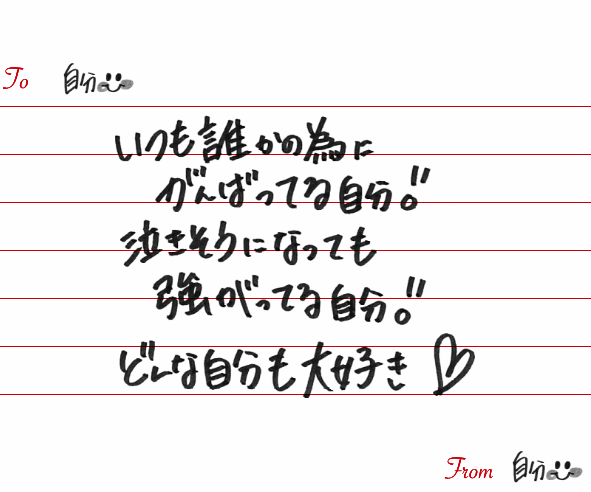 To 自分
いつも誰かの為に
がんばってる自分!!
泣きそうになっても
強がってる自分!!
どんな自分も大好き♡
From 自分